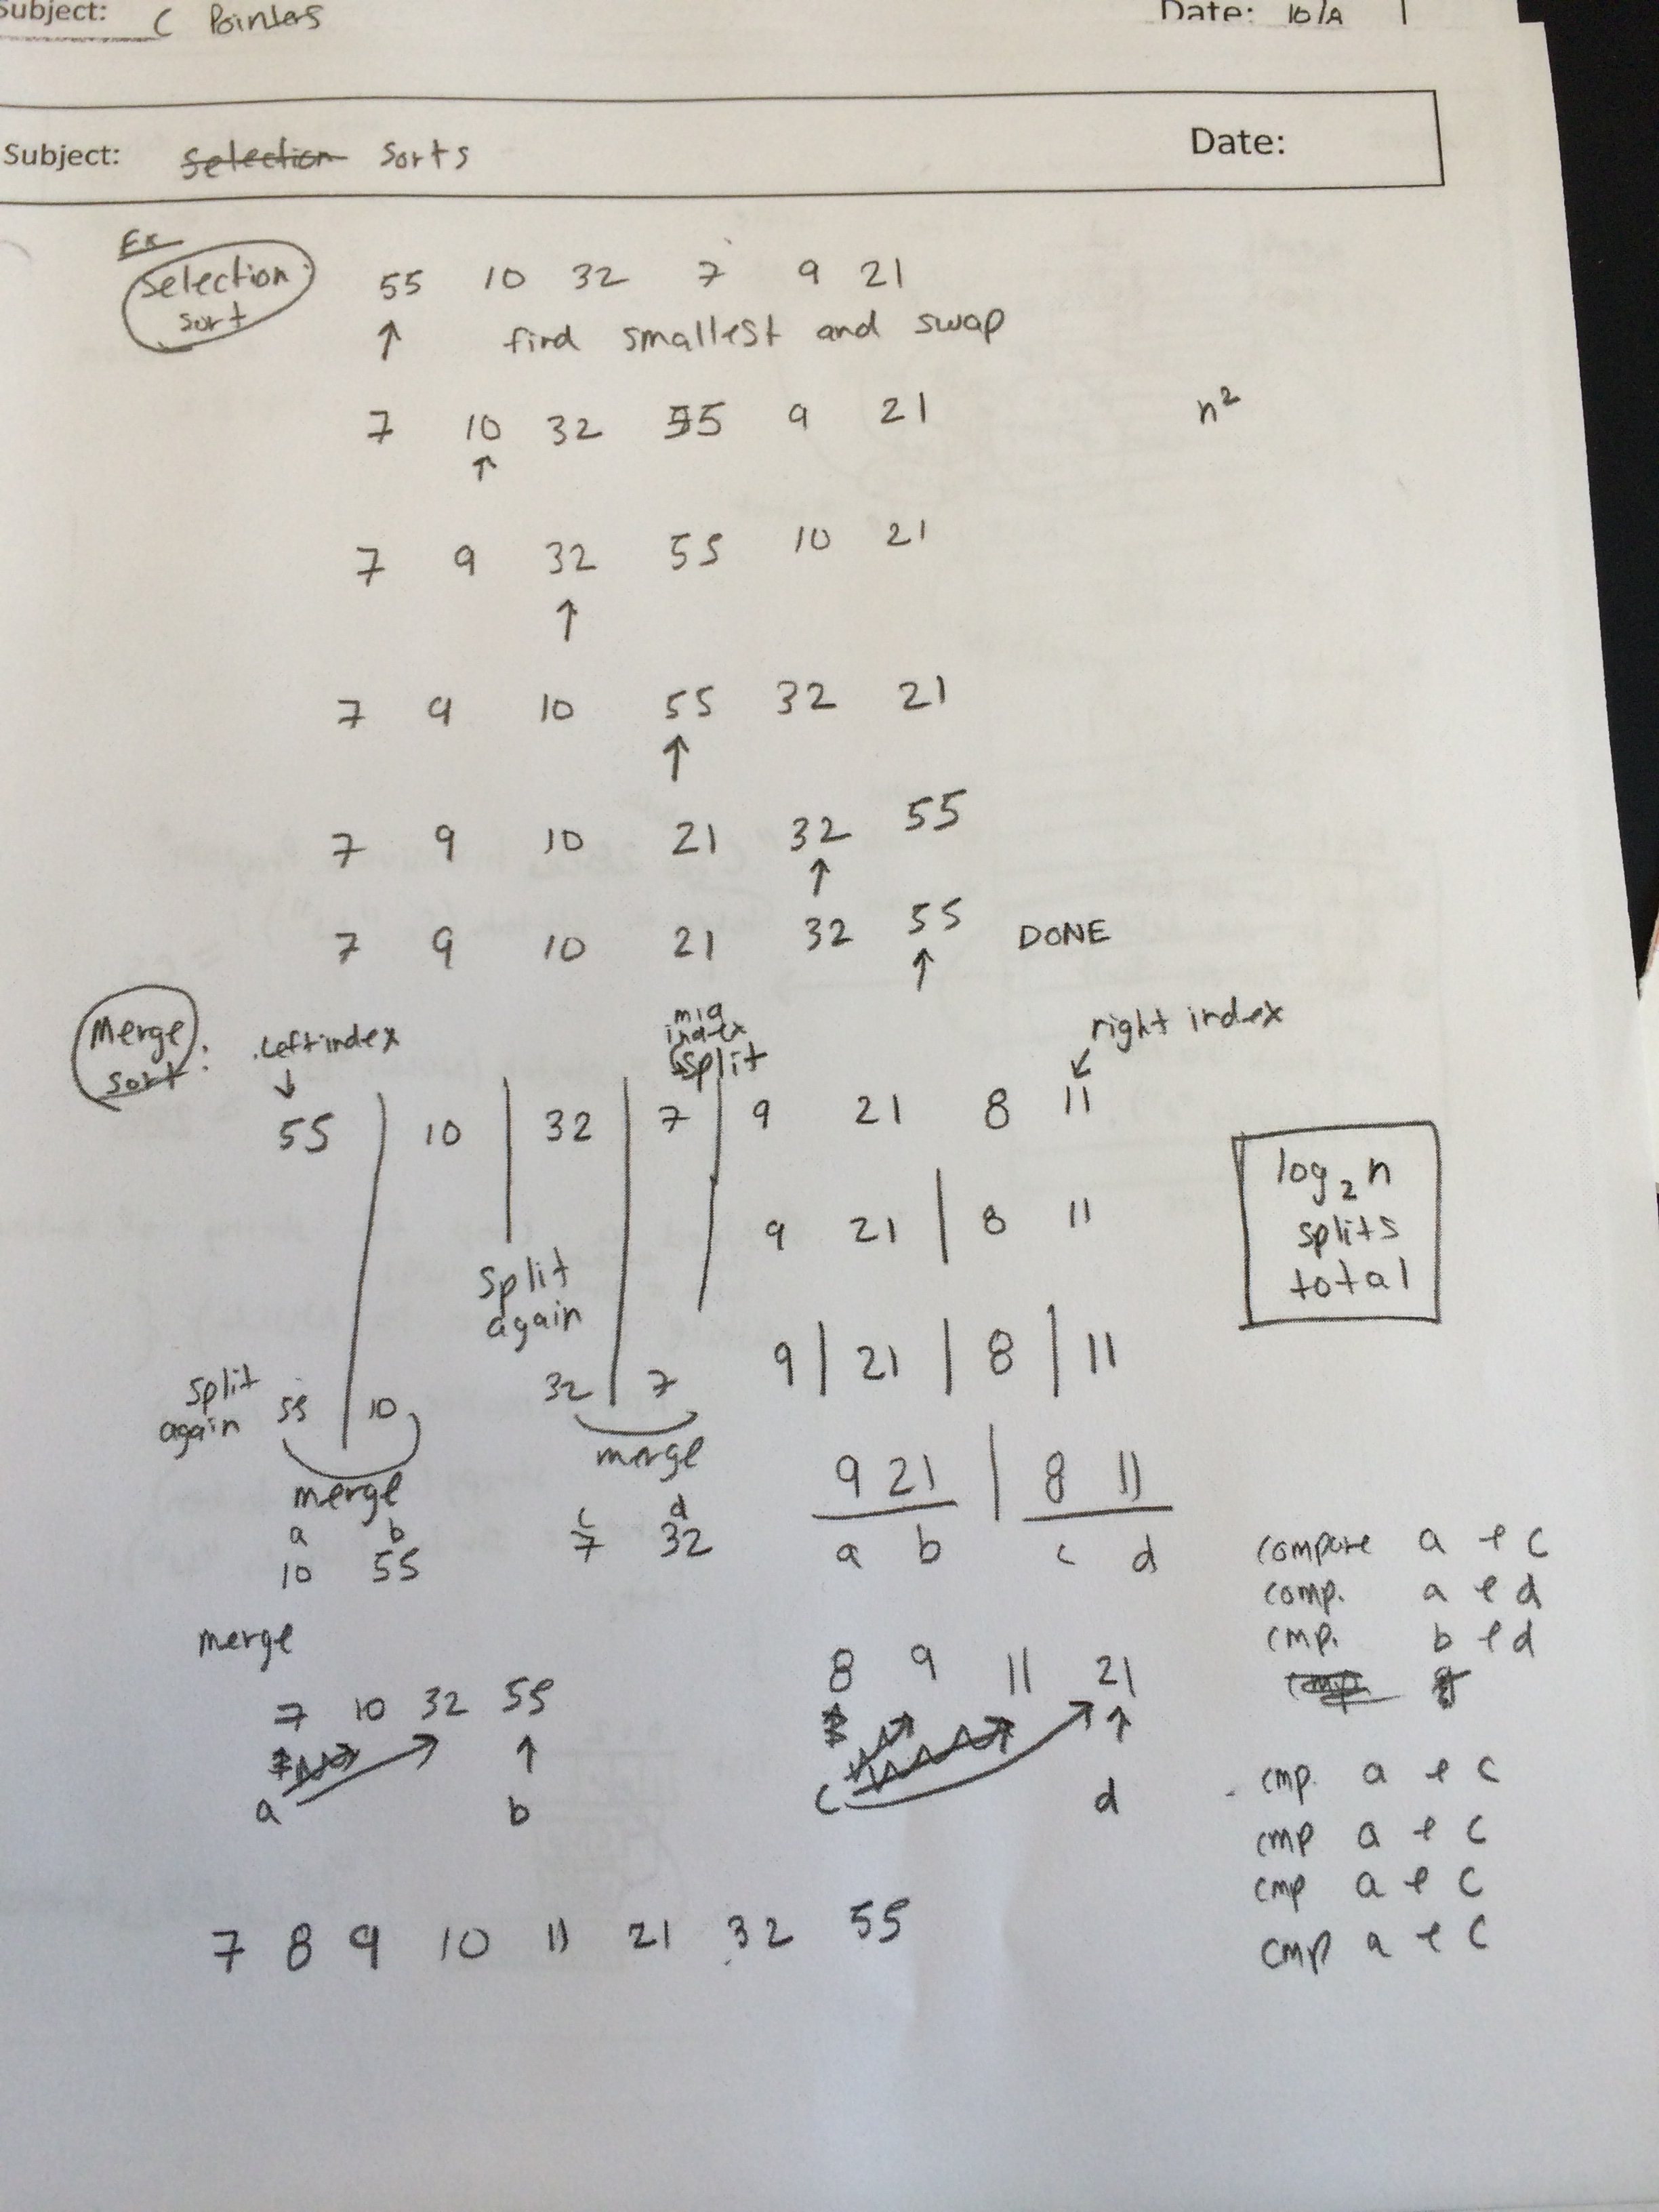 Subject: C Pointers Date: 10/A
Subject: Selection Sorts Date:
Ex
Selection sort
55 10 32 7 9 21
↑ find smallest and swap
7 10 32 55 9 21 n²
↑
7 9 32 55 10 21
↑
7 9 10 55 32 21
↑
7 9 10 21 32 55
↑
7 9 10 21 32 55 DONE
↑
Merge sort:
Left index
mid index
split
right index
55 | 10 | 32 | 7 | 9 21 8 11
log₂n
splits
total
9 21 | 8 11
split
again
9 | 21 | 8 | 11
split
again
55 | 10 32 | 7
merge merge
9 21 | 8 11
a b c d
a b c d
10 55 7 32
compare a & c
comp. a & d
cmp. b & d
merge
7 10 32 55
a b
8 9 11 21
c d
cmp. a & c
cmp a & c
cmp a & c
cmp a & c
7 8 9 10 11 21 32 55